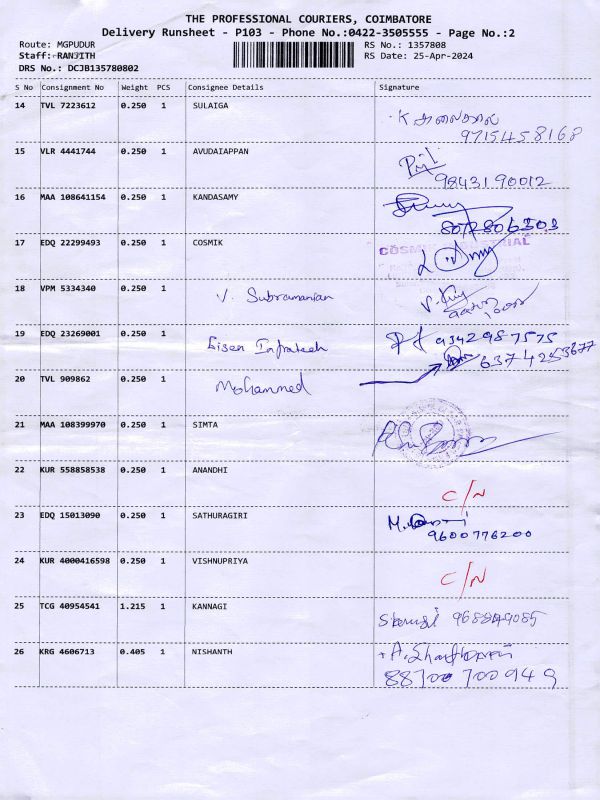 THE PROFESSIONAL COURIERS, COIMBATORE
Delivery Runsheet - P103 - Phone No.:0422-3505555 - Page No.:2
Route: MGPUDUR RS No.: 1357808
Staff: RANJITH RS Date: 25-Apr-2024
DRS No.: DCJB135780802
S No Consignment No Weight PCS Consignee Details Signature
14 TVL 7223612 0.250 1 SULAIGA
K
9715458168
15 VLR 4441744 0.250 1 AVUDAIAPPAN
9843190012
16 MAA 108641154 0.250 1 KANDASAMY
8072806303
17 EDQ 22299493 0.250 1 COSMIK
COSMIK
18 VPM 5334340 0.250 1 V. Subramanian
19 EDQ 23269001 0.250 1 Eisen Infratech 9342987575
6374253677
20 TVL 909862 0.250 1 Mohammed
21 MAA 108399970 0.250 1 SIMTA
22 KUR 558858538 0.250 1 ANANDHI
C/N
23 EDQ 15013090 0.250 1 SATHURAGIRI M.
9600776200
24 KUR 4000416598 0.250 1 VISHNUPRIYA
C/N
25 TCG 40954541 1.215 1 KANNAGI
26 KRG 4606713 0.405 1 NISHANTH A.